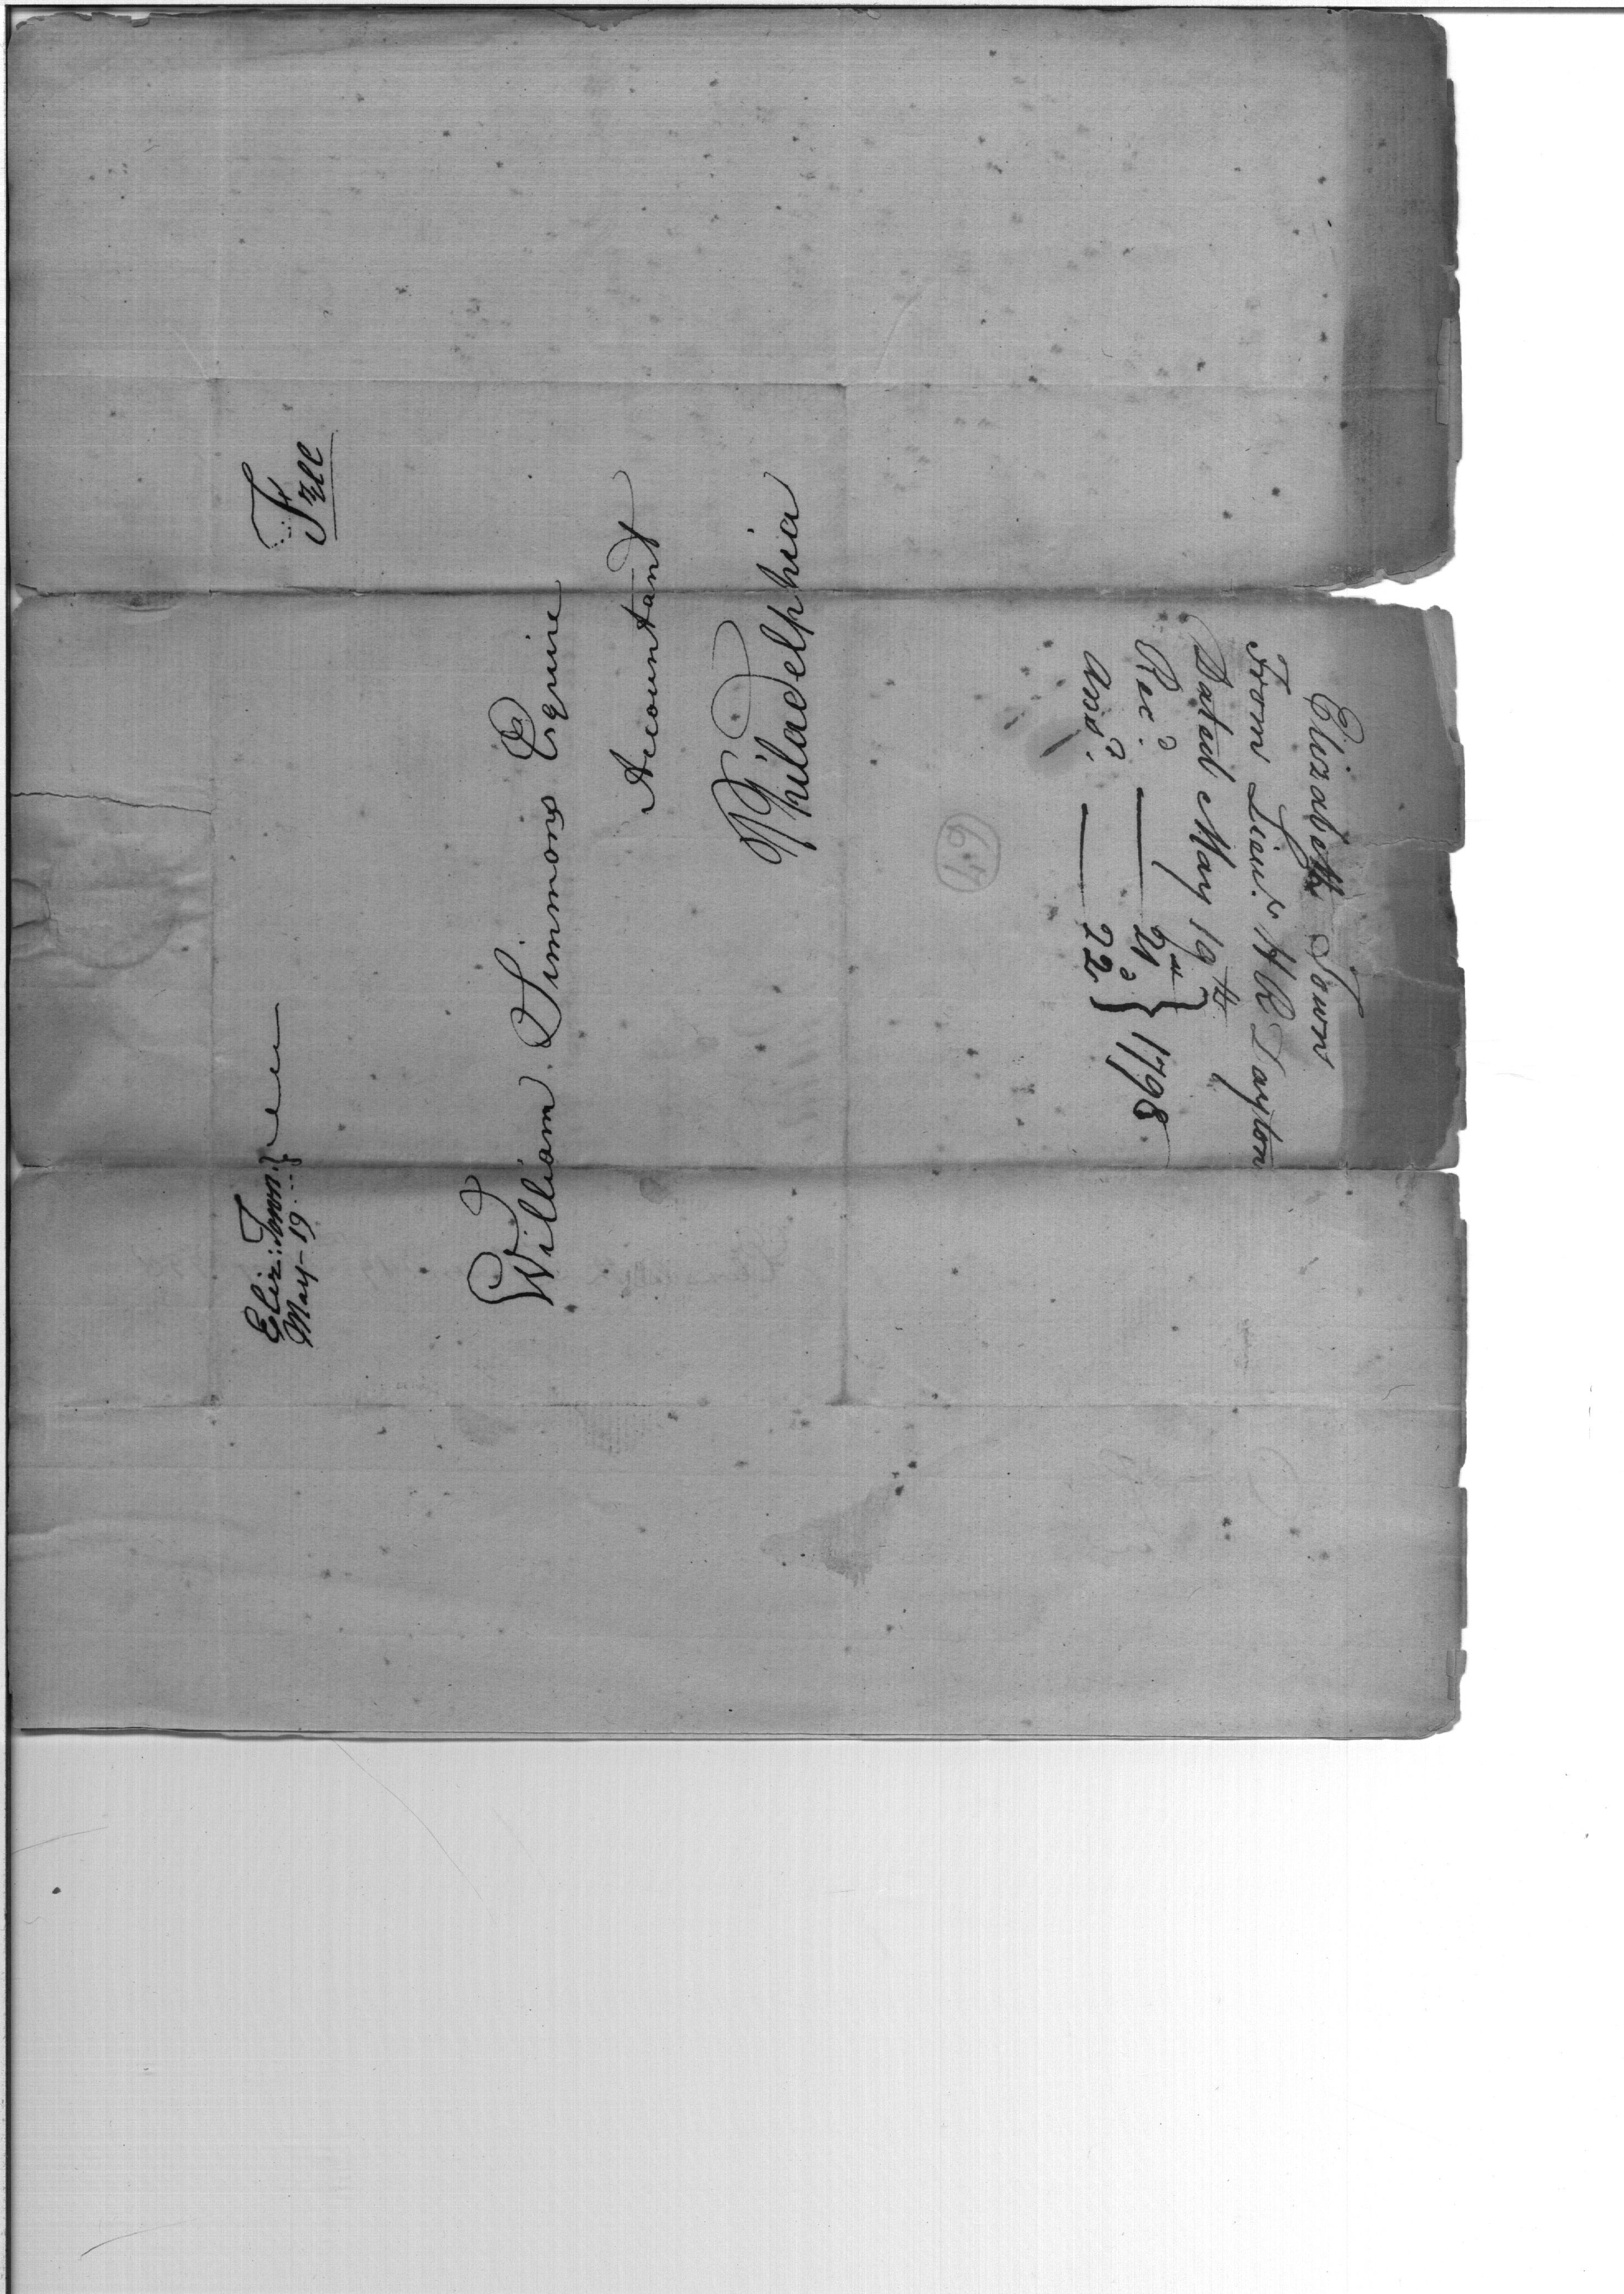 Eliz: Town
May 19
Free
William Simmons Esquire
Accountant
Philadelphia
67
Elizabeth Town
From Lieut. W R Dayton
Dated May 19th
Recd. — 21st } 1798
Ansd. — 22d }